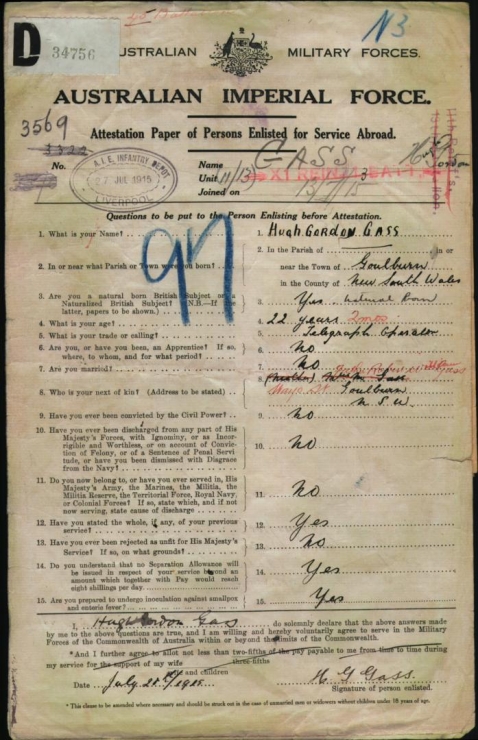 N3
D 34756
AUSTRALIAN MILITARY FORCES.
AUSTRALIAN IMPERIAL FORCE.
Attestation Paper of Persons Enlisted for Service Abroad.
3569
3322
No.
A.I.F. INFANTRY DEPOT
JUL 1915
LIVERPOOL
Name GASS Gordon
Unit
Joined on
97
Questions to be put to the Person Enlisting before Attestation.
1. What is your Name? 1. Hugh Gordon Gass
2. In or near what Parish or Town were you born? 2. In the Parish of in or
near the Town of Goulburn
in the County of New South Wales
3. Are you a natural born British Subject or a Naturalised British Subject? (N.B.—If the latter, papers to be shown.) 3. Yes natural Born
4. What is your age? 4. 22 years 2mos
5. What is your trade or calling? 5. Telegraph Operator
6. Are you, or have you been, an Apprentice? If so, where, to whom, and for what period? 6. No
7. Are you married? 7. No
8. Who is your next of kin? (Address to be stated) 8. Gass
Goulburn
N.S.W
9. Have you ever been convicted by the Civil Power? 9. No
10. Have you ever been discharged from any part of His
Majesty's Forces, with Ignominy, or as Incor-
rigible and Worthless, or on account of Conviction
of Felony, or of a Sentence of Penal Servi
tude, or have you been dismissed with Disgrace
from the Navy? 10. No
11. Do you now belong to, or have you ever served in, His
Majesty's Army, the Marines, the Militia, the
Militia Reserve, the Territorial Force, Royal Navy
or Colonial Forces? If so, state which, and if not
now serving, state cause of discharge 11. No
12. Have you stated the whole, if any, of your previous
service? 12. Yes
13. Have you ever been rejected as unfit for His Majesty's
Service? If so, on what grounds? 13. No
14. Do you understand that no Separation Allowance will
be issued in respect of your service beyond an
amount which together with Pay would reach
eight shillings per day. 14. Yes
15. Are you prepared to undergo inoculation against smallpox
and enteric fever? 15. Yes
I, Hugh Gordon Gass do solemnly declare that the above answers made
by me to the above questions are true, and I am willing and hereby voluntarily agree to serve in the Military
Forces of the Commonwealth of Australia within or beyond the limits of the Commonwealth.
*And I further agree to allot not less than two-fifths of the pay payable to me from time to time during
three-fifths
my service for the support of my wife
wife and children
Date July 1915. H G Gass.
Signature of person enlisted.
* This clause to be amended where necessary and should be struck out in the case of unmarried men or widowers without children under 18 years of age.